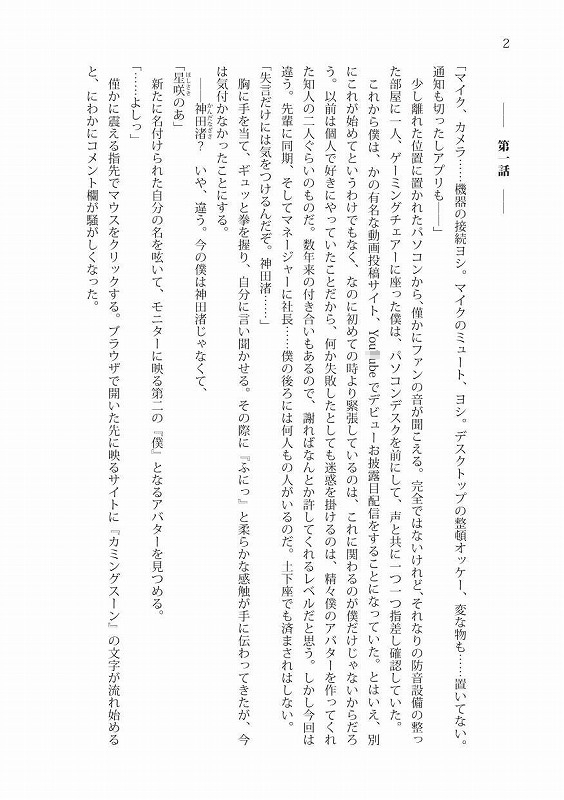 2
第一話
「マイク、カメラ……機器の接続ヨシ。マイクのミュート、ヨシ。デスクトップの整頓オッケー、変な物も……置いてない。
通知も切ったしアプリも――」
少し離れた位置に置かれたパソコンから、僅かにファンの音が聞こえる。完全ではないけれど、それなりの防音設備の整っ
た部屋に一人、ゲーミングチェアーに座った僕は、パソコンデスクを前にして、声と共に一つ一つ指差し確認していた。
これから僕は、かの有名な動画投稿サイト、You ubeでデビューお披露目配信をすることになっていた。とはいえ、別
にこれが始めてというわけでもなく、なのに初めての時より緊張しているのは、これに関わるのが僕だけじゃないからだろ
う。以前は個人で好きにやっていたことだから、何か失敗したとしても迷惑を掛けるのは、精々僕のアバターを作ってくれ
た知人の二人ぐらいのものだ。数年来の付き合いもあるので、謝ればなんとか許してくれるレベルだと思う。しかし今回は
違う。先輩に同期、そしてマネージャーに社長……僕の後ろには何人もの人がいるのだ。土下座でも済まされはしない。
「失言だけには気をつけるんだぞ。神田渚……」
胸に手を当て、ギュッと拳を握り、自分に言い聞かせる。その際に『ふにっ』と柔らかな感触が手に伝わってきたが、今
は気付かなかったことにする。
――神田渚？　いや、違う。今の僕は神田渚じゃなくて、
「星咲のあ」
新たに名付けられた自分の名を呟いて、モニターに映る第二の『僕』となるアバターを見つめる。
「……よしっ」
僅かに震える指先でマウスをクリックする。ブラウザで開いた先に映るサイトに『カミングスーン』の文字が流れ始める
と、にわかにコメント欄が騒がしくなった。